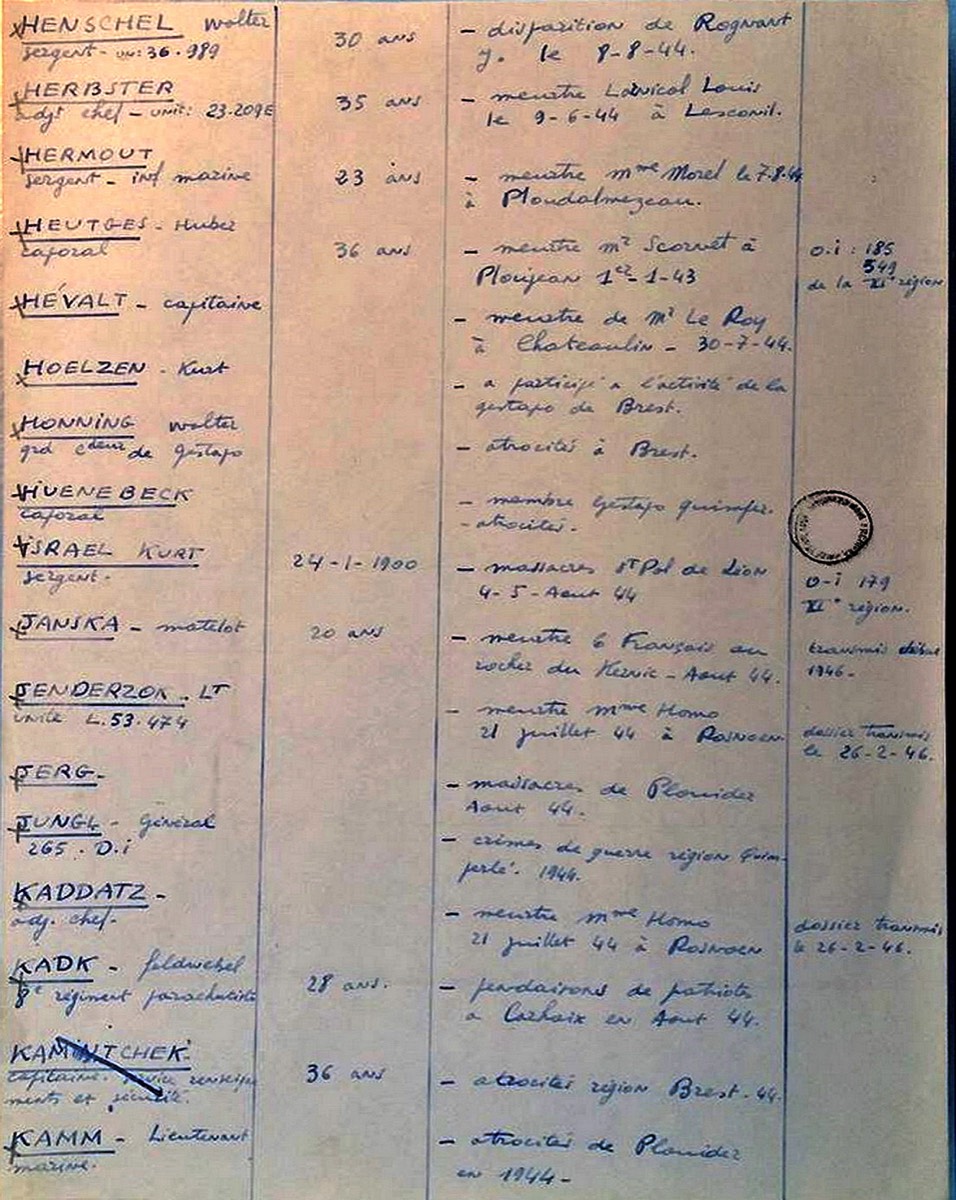 HENSCHEL Walter
sergent - un: 36.989
30 ans
- disparition de Rognant
y. le 8-8-44.
HERBSTER
adjt chef - unit: 23.209E
35 ans
- meurtre Larnicol Louis
le 9-6-44 à Lesconil.
HERMOUT
sergent - inf marine
23 ans
- meurtre mme Morel le 7.8.44
à Ploudalmezeau.
HEUTGES - Huber
caporal
36 ans
- meurtre mr Scornet à
Ploujean 1er-1-43
o.i : 185
549
de la XIe région
HÉVALT - capitaine
- meurtre de Mr Le Roy
à Chateaulin - 30-7-44.
HOELZEN - Kurt
- a participé a l'activité de la
gestapo de Brest.
HONNING Walter
grd cdeur de gestapo
- atrocités à Brest.
HUENEBECK
caporal
- membre Gestapo Quimper.
- atrocités.
ISRAEL KURT
sergent.
24-1-1900
- massacres St Pol de Léon
4-5-Aout 44
o-i 179
XIe région.
JANSKA - matelot
20 ans
- meurtre 6 Français au
rocher du Kernic - Aout 44.
transmis début
1946.
JENDERZOK - LT
unité L.53.474
- meurtre mme Homo
21 juillet 44 à Rosnoen
dossier transmis
le 26-2-46.
JERG -
- massacres de Plouider
Aout 44.
JUNGL - Général
265. D.i
- crimes de guerre région Quim-
perlé. 1944.
KADDATZ -
adj. chef.
- meurtre mme Homo
21 juillet 44 à Rosnoen
dossier transmis
le 26-2-46.
KADK - feldwebel
8e régiment parachutiste
28 ans.
- pendaisons de patriotes
a Carhaix en Aout 44.
KAMINTCHEK.
capitaine. service renseigne
ments et sécurité.
36 ans
- atrocités région Brest - 44.
KAMM - Lieutenant
marine.
- atrocités de Plouider
en 1944 -